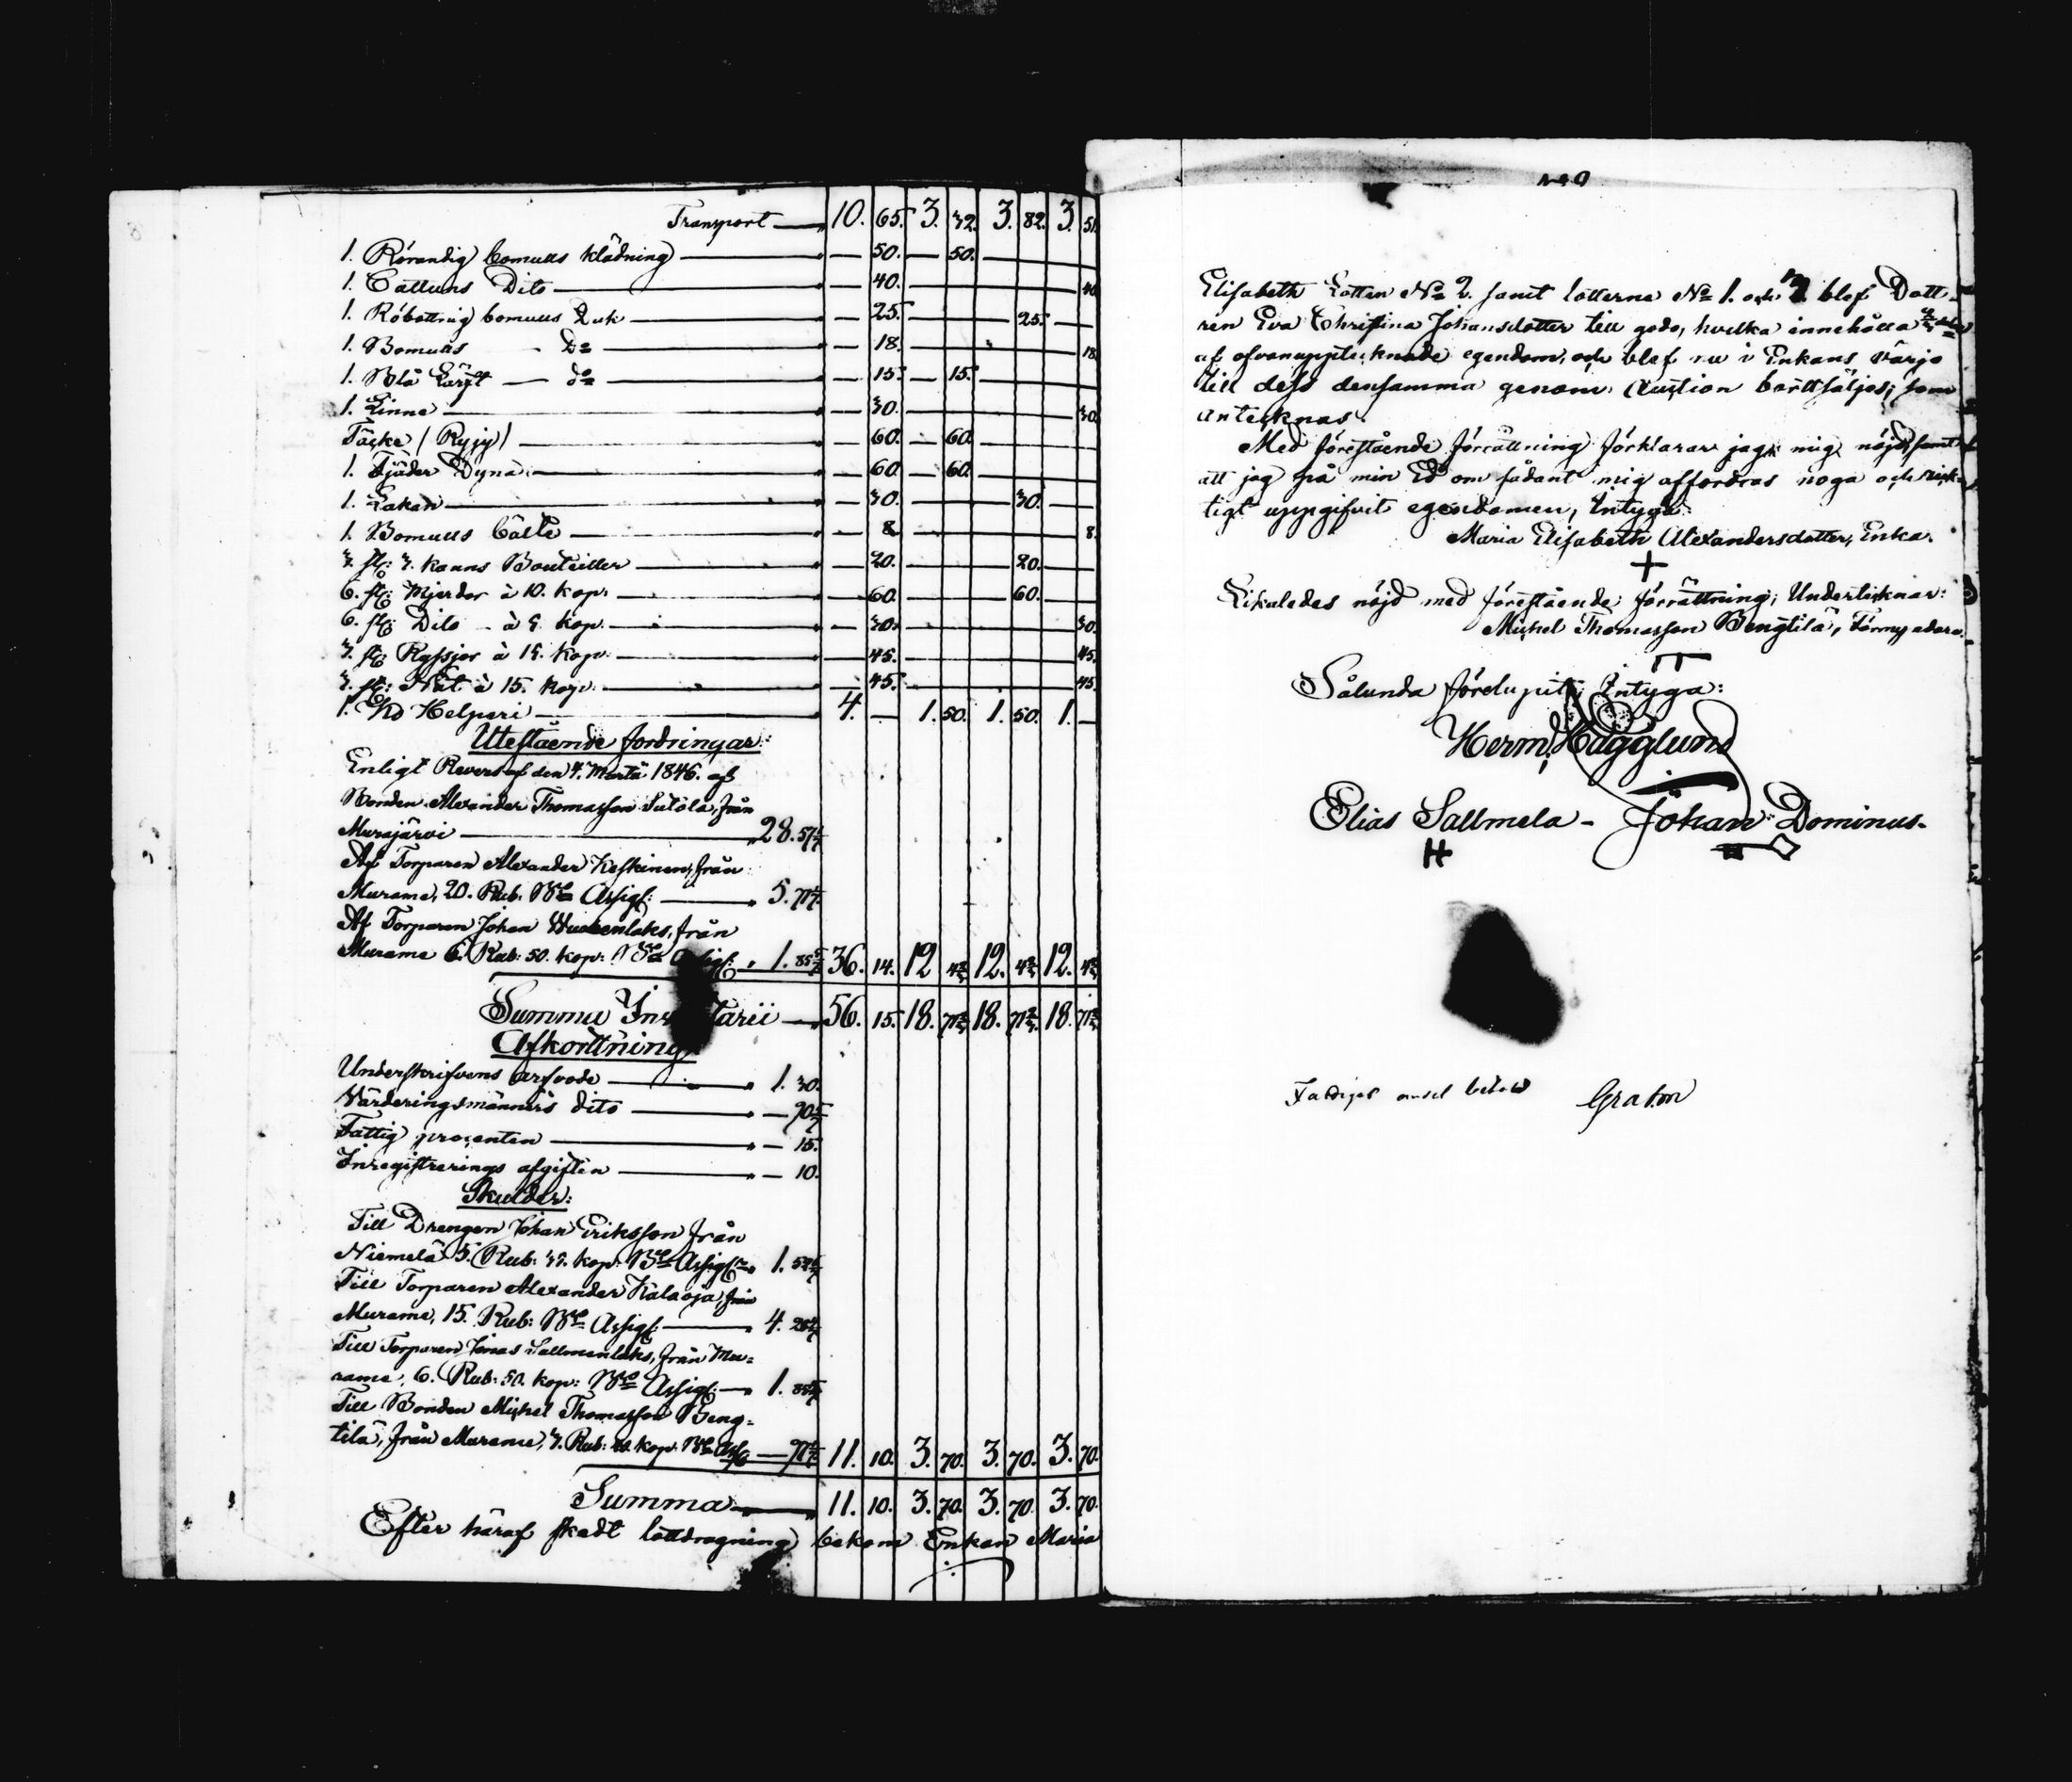 Transport — 10. 65. 3. 32. 3. 82. 3. 51.
1. Rörandig bomulls klädning — — 50. — 50. —
1. Cattuns Dito — — 40. — 40
1. Röbottnig bomulls Duk — — 25. — 25. —
1. Bomulls — Do — — 18. — 18.
1. Blå Lärft — do — — 15. — 15. —
1. Linne — — 30. — 30.
Täcke / Ryjy / — — 60. — 60. —
1. Fjäder Dyna — — 60. — 60. —
1. Lakan — — 30. — 30. —
1. Bomulls Bälte — — 8. — 8.
3. st: 3. kanns Bouteiller — — 20. — 20. —
6. st: Mjerdor à 10. kop: — — 60. — 60. —
6. st: Dito - à 5. kop. — — 30. — 30.
3. st: Ryssjor à 15. kop: — — 45. — 45.
3. st: Nät à 15. kop: — — 45. — 45.
1. Ko Helperi — 4. — 1. 50. 1. 50. 1. —
Utestående fordringar:
Enligt Revers af den 4. Martii 1846. af
Bonden Alexander Thomasson Sutola, från
Murajärvi — 28. 57 1/7
Af Torparen Alexander Keskinen, från
Murame, 20. Rub: Bco Assigt: — 5. 71 3/7
Af Torparen Johan från
Murame 6. Rub: 50. kop: Bco 1. 85 5/7 36. 14. 12 4 2/3 12. 4 2/3 12. 4 2/3
Summa — 56. 15. 18. 71 2/3 18. 71 2/3 18. 71 2/3
Afkortning
Underskrifvens arfvode — 1. 30.
Värderingsmänners dito — — 90
Fattig procenten — — 15.
Inregistrerings afgiften — — 10.
Skulder:
Till Drengen Johan Eriksson från
Niemelä 5. Rub: kop: Bco Assigt: 1.
Till Torparen Alexander Kalaoja, från
Murame, 15. Rub: Bco Assigt: — 4. 28 4/7
Till Torparen Jonas Sallmenlaks, från Mu=
rame, 6. Rub: 50. kop: Bco Assigt: — 1. 85 5/7
Till Bonden Michel Thomasson Beng=
tilä, från Murame, 3. Rub: kop: Bco — 11. 10. 3. 70. 3. 70. 3. 70.
Summa — 11. 10. 3. 70. 3. 70. 3. 70.
Efter häraf skedt lottdragning bekom Enkan Maria
Elisabeth Lotten No 2. samt lotterne No 1. och 3 blef Dott-
ren Eva Christina Johansdotter till godo, hvilka innehålla
af ofvanupptecknade egendom, och blef nu i Enkans värjo
till dess densamma genom Auction borttsäljes; som
antecknas.
Med förestående förrättning förklarar jag mig nöjd, samt
att jag på min Ed om sådant mig affordras noga och rick-
tigt uppgifvit egendomen, Intyga:
Maria Elisabeth Alexandersdotter, Enka.
Likaledes nöjd med förestående förrättning, Undertecknar:
Michel Thomasson Bengtilä, Förmyndare.
Sålunda förelupit, Intyga:
Herm. Hägglund
Elias Sallmela - Johan Dominus.